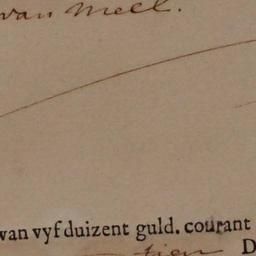 van Meel.
van vyf duizent guld. courant
tien D